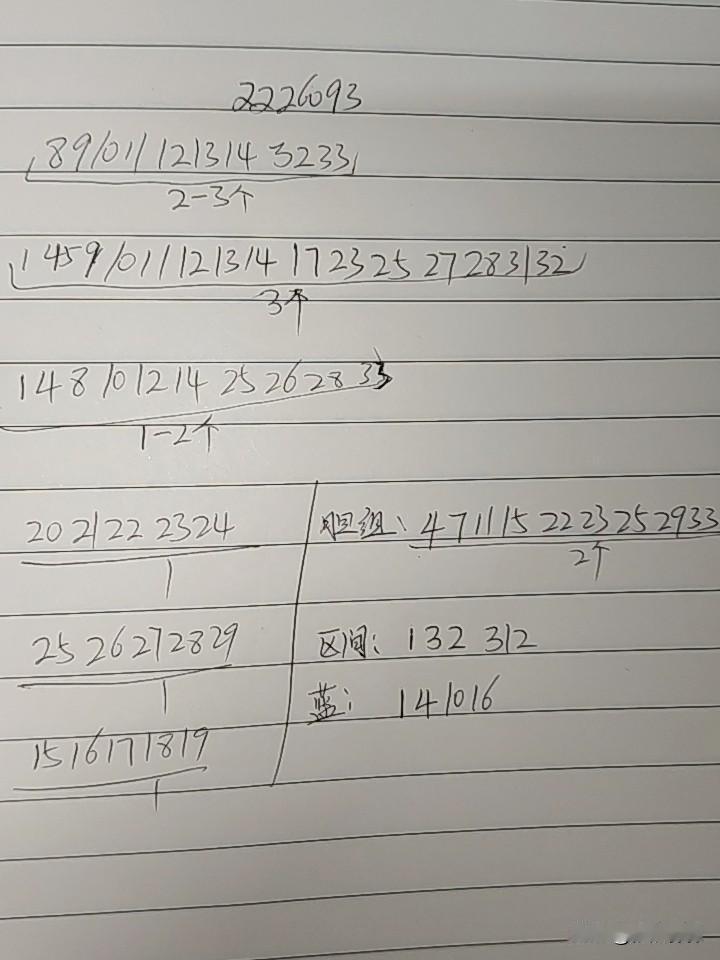 2226093
8 9 10 11 12 13 14 32 33
2-3个
1 4 5 9 10 11 12 13 14 17 23 25 27 28 31 32
3个
1 4 8 10 12 14 25 26 28 33
1-2个
20 21 22 23 24
1
25 26 27 28 29
1
15 16 17 18 19
1
胆组: 4 7 11 15 22 23 25 29 33
2个
区间: 132 312
蓝: 1 4 10 16